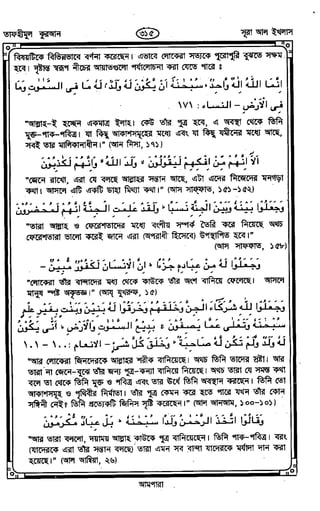 তাফহীমুল কুরআন ৩১৫ সূরা আল ইখলাস
বিষয়টিকে বিভিন্নভাবে বর্ণনা করেছেন। এভাবে লোকেরা সত্যকে পুরোপুরি বুঝতে সক্ষম
হবে। দৃষ্টান্ত স্বরূপ নীচের আয়াতগুলো পর্যালোচনা করা যেতে পারে :
اِنَّمَا اللّٰهُ اِلٰهٌ وَّاحِدٌ ، سُبْحٰنَهٗ اَنْ يَّكُوْنَ لَهٗ وَلَدٌ ، لَهٗ مَا فِى السَّمٰوٰتِ وَمَا
فِى الْاَرْضِ – النساء : ١٧١
"আল্লাহ-ই হচ্ছেন একমাত্র ইলাহ। কেউ তাঁর পুত্র হবে, এ অবস্থা থেকে তিনি
মুক্ত-পাক-পবিত্র। যা কিছু আকাশসমূহের মধ্যে এবং যা কিছু যমীনের মধ্যে আছে,
সবই তার মালিকানাধীন।" (আন নিসা, ১৭১)
اَلَآ اِنَّهُمْ مِّنْ اِفْكِهِمْ لَيَقُوْلُوْنَ ، وَلَدَ اللّٰهُ ، وَاِنَّهُمْ لَكٰذِبُوْنَ
"জেনে রাখো, এরা যে বলছে আল্লাহর সন্তান আছে, এটা এদের নিজেদের মনগড়া
কথা। আসলে এটি একটি ডাহা মিথ্যা কথা।" (আস সাফ্ফাত, ১৫১-১৫২)
وَجَعَلُوْا بَيْنَهٗ وَبَيْنَ الْجِنَّةِ نَسَبًا ، وَلَقَدْ عَلِمَتِ الْجِنَّةُ اِنَّهُمْ لَمُحْضَرُوْنَ
"তারা আল্লাহ ও ফেরেশতাদের মধ্যে বংশীয় সম্পর্ক তৈরি করে নিয়েছে অথচ
ফেরেশতারা ভালো করেই জানে এরা (অপরাধী হিসেবে) উপস্থাপিত হবে।"
(আস সাফ্ফাত, ১৫৮)
وَجَعَلُوْا لَهٗ مِنْ عِبَادِهٖ جُزْءًا ، اِنَّ الْاِنْسَانَ لَكَفُوْرٌ مُّبِيْنٌ –
"লোকেরা তাঁর বান্দাদের মধ্য থেকে কাউকে তাঁর অংশ বানিয়ে ফেলেছে। আসলে
মানুষ স্পষ্ট অকৃতজ্ঞ।" (আয্ যুখরুফ, ১৫)
وَجَعَلُوْا لِلّٰهِ شُرَكَآءَ الْجِنَّ وَخَلَقَهُمْ وَخَرَقُوْا لَهٗ بَنِيْنَ وَبَنٰتٍ بِغَيْرِ عِلْمٍ
سُبْحٰنَهٗ وَتَعٰلٰى عَمَّا يَصِفُوْنَ ، بَدِيْعُ السَّمٰوٰتِ وَالْاَرْضِ ، اَنّٰى يَكُوْنُ
لَهٗ وَلَدٌ وَّلَمْ تَكُنْ لَّهٗ صَاحِبَةٌ ، وَخَلَقَ كُلَّ شَىْءٍ – الانعام : ١٠٠-١٠١
"আর লোকেরা জিনদেরকে আল্লাহর শরীক বানিয়েছে। অথচ তিনি তাদের স্রষ্টা। আর
তারা না জেনে-বুঝে তাঁর জন্য পুত্র-কন্যা বানিয়ে নিয়েছে। অথচ তারা যে সমস্ত কথা
বলে তা থেকে তিনি মুক্ত ও পবিত্র এবং তার ঊর্ধে তিনি অবস্থান করছেন। তিনি তো
আকাশসমূহ ও পৃথিবীর নির্মাতা। তাঁর পুত্র কেমন করে হতে পারে যখন তাঁর কোন
সঙ্গিনী নেই? তিনি প্রত্যেকটি জিনিস সৃষ্টি করেছেন।" (আল আনআম, ১০০-১০১)
وَقَالُوا اتَّخَذَ الرَّحْمٰنُ وَلَدًا سُبْحٰنَهٗ ، بَلْ عِبَادٌ مُّكْرَمُوْنَ
"আর তারা বললো, দয়াময় আল্লাহ কাউকে পুত্র বানিয়েছেন। তিনি পাক-পবিত্র। বরং
(যাদেরকে এরা তাঁর সন্তান বলছে) তারা এমন সব বান্দা যাদেরকে মর্যাদা দান করা
হয়েছে।" (আল আম্বিয়া, ২৬)
আমপারা